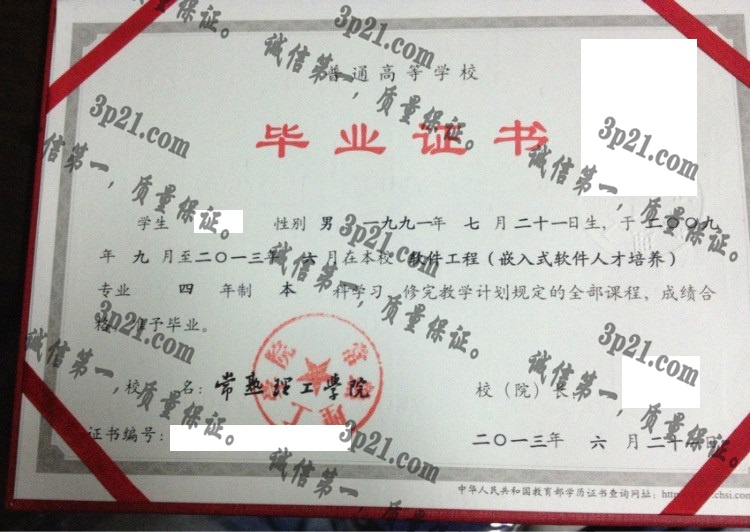 普通高等学校
毕业证书
学生 性别 男 一九九一年 七 月 二十一日生，于 二〇〇九
年 九 月至二〇一三年 六 月在本校 软件工程（嵌入式软件人才培养）
专业 四 年制 本 科学习，修完教学计划规定的全部课程，成绩合
格，准予毕业。
校 名：常熟理工学院
校（院）长：
证书编号：
二〇一三年 六 月 二十 日
中华人民共和国教育部学历证书查询网址：
3p21.com
诚信第一，质量保证。
3p21.com
诚信第一，质量保证。
3p21.com
诚信第一，质量保证。
3p21.com
诚信第一，质量保证。
3p21.com
诚信第一，质量保证。
3p21.com
诚信第一，质量保证。
3p21.com
诚信第一，质量保证。